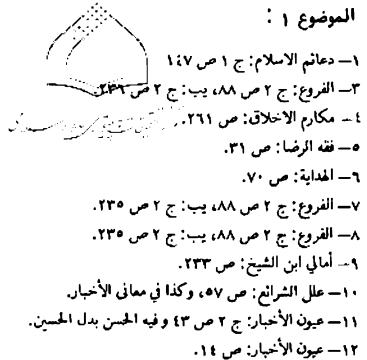 الموضوع ١ :
١— دعائم الاسلام: ج ١ ص ١٤٧
٣— الفروع: ج ٢ ص ٨٨، يب: ج ٢ ص ٢٣٦
٤— مكارم الاخلاق: ص ٢٦١.
٥— فقه الرضا: ص ٣١.
٦— الهداية: ص ٧٠.
٧— الفروع: ج ٢ ص ٨٨، يب: ج ٢ ص ٢٣٥.
٨— الفروع: ج ٢ ص ٨٨، يب: ج ٢ ص ٢٣٥.
٩— أمالي ابن الشيخ: ص ٢٣٣.
١٠— علل الشرائع: ص ٥٧، وكذا في معانى الأخبار.
١١— عيون الأخبار: ج ٢ ص ٤٣ وفيه الحسن بدل الحسين.
١٢— عيون الأخبار: ص ١٤.